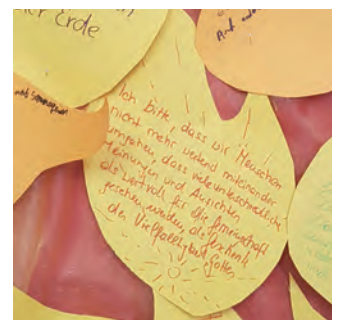 der Erde
Ich bitte, dass wir Menschen
nicht mehr wertend miteinander
umgehen, dass viele unterschiedliche
Meinungen und Ansichten
als wertvoll für die Gemeinschaft
gesehen werden, als Geschenk
der Vielfältigkeit Gottes